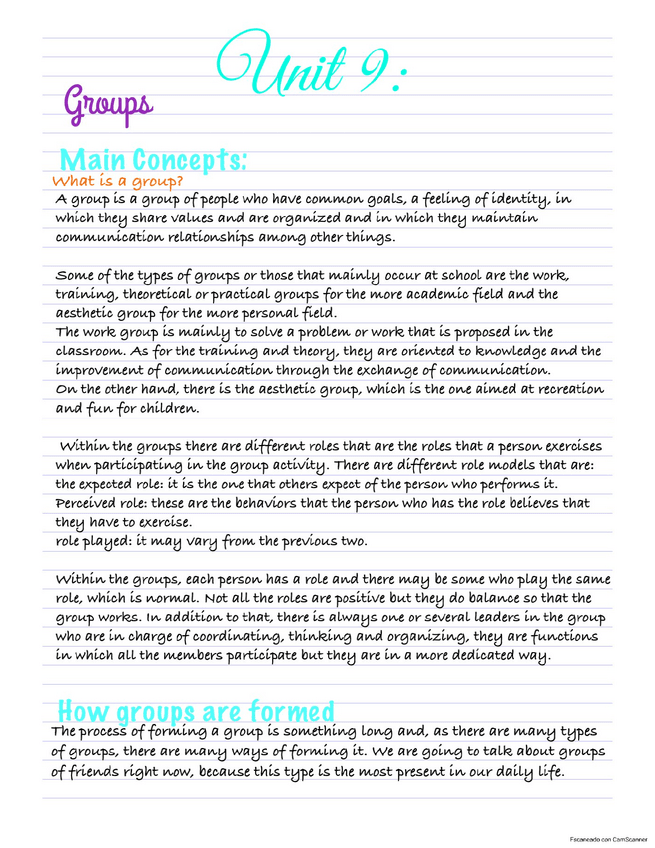 Unit 9:
Groups
Main Concepts:
What is a group?
A group is a group of people who have common goals, a feeling of identity, in
which they share values and are organized and in which they maintain
communication relationships among other things.
Some of the types of groups or those that mainly occur at school are the work,
training, theoretical or practical groups for the more academic field and the
aesthetic group for the more personal field.
The work group is mainly to solve a problem or work that is proposed in the
classroom. As for the training and theory, they are oriented to knowledge and the
improvement of communication through the exchange of communication.
On the other hand, there is the aesthetic group, which is the one aimed at recreation
and fun for children.
Within the groups there are different roles that are the roles that a person exercises
when participating in the group activity. There are different role models that are:
the expected role: it is the one that others expect of the person who performs it.
Perceived role: these are the behaviors that the person who has the role believes that
they have to exercise.
role played: it may vary from the previous two.
Within the groups, each person has a role and there may be some who play the same
role, which is normal. Not all the roles are positive but they do balance so that the
group works. In addition to that, there is always one or several leaders in the group
who are in charge of coordinating, thinking and organizing, they are functions
in which all the members participate but they are in a more dedicated way.
How groups are formed
The process of forming a group is something long and, as there are many types
of groups, there are many ways of forming it. We are going to talk about groups
of friends right now, because this type is the most present in our daily life.
Escaneado con CamScanner